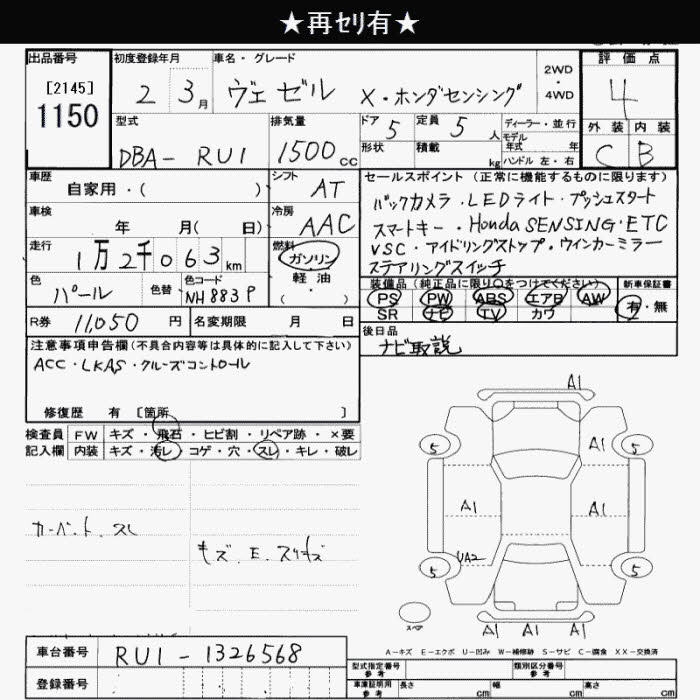 ★再ｾﾘ有★
出品番号
[2145]
1150
初度登録年月
2 3 月
車名・グレード
ヴェゼル X・ホンダセンシング
2WD
・
4WD
評価点
4
外装 内装
C B
型式
DBA- RU1
排気量
1500 cc
ドア 5
定員 5 人
形状
積載 kg
ディーラー・並行
モデル
年式 年
ハンドル 左・右
車歴
自家用・( )
シフト
AT
車検
年 月( 日)
冷房
AAC
走行
1万2千063 km
燃料
ガソリン
軽油
( ・ )
色
パール
色替
色コード
NH883P
R券 11,050 円
名変期限 月 日
セールスポイント(正常に機能するものに限ります)
バックカメラ・LEDライト・プッシュスタート
スマートキー・Honda SENSING・ETC
VSC・アイドリングストップ・ウインカーミラー
ステアリングスイッチ
装備品(純正品に限り○をつけてください)
新車保証書
PS PW ABS エアB AW
SR ナビ TV カワ
有・無
後日品
ナビ取説
注意事項申告欄(不具合内容等は具体的に記入して下さい)
ACC・LKAS・クルーズコントロール
修復歴 有 [箇所 ]
検査員 FW キズ・飛石・ヒビ割・リペア跡・×要
記入欄 内装 キズ・汚レ・コゲ・穴・スレ・キレ・破レ
カーペット スレ
キズ. E. スリキズ
A1
5 A1 5
A1 A1
UA2
5 5
スペア
A1 A1 A1
A-キズ E-エクボ U-凹み W-補修跡 S-サビ C-腐食 XX-交換済
車台番号
RU1-1326568
登録番号
型式指定番号
参考
類別区分番号
参考
車庫証明用
参考
長さ cm
幅 cm
高さ cm